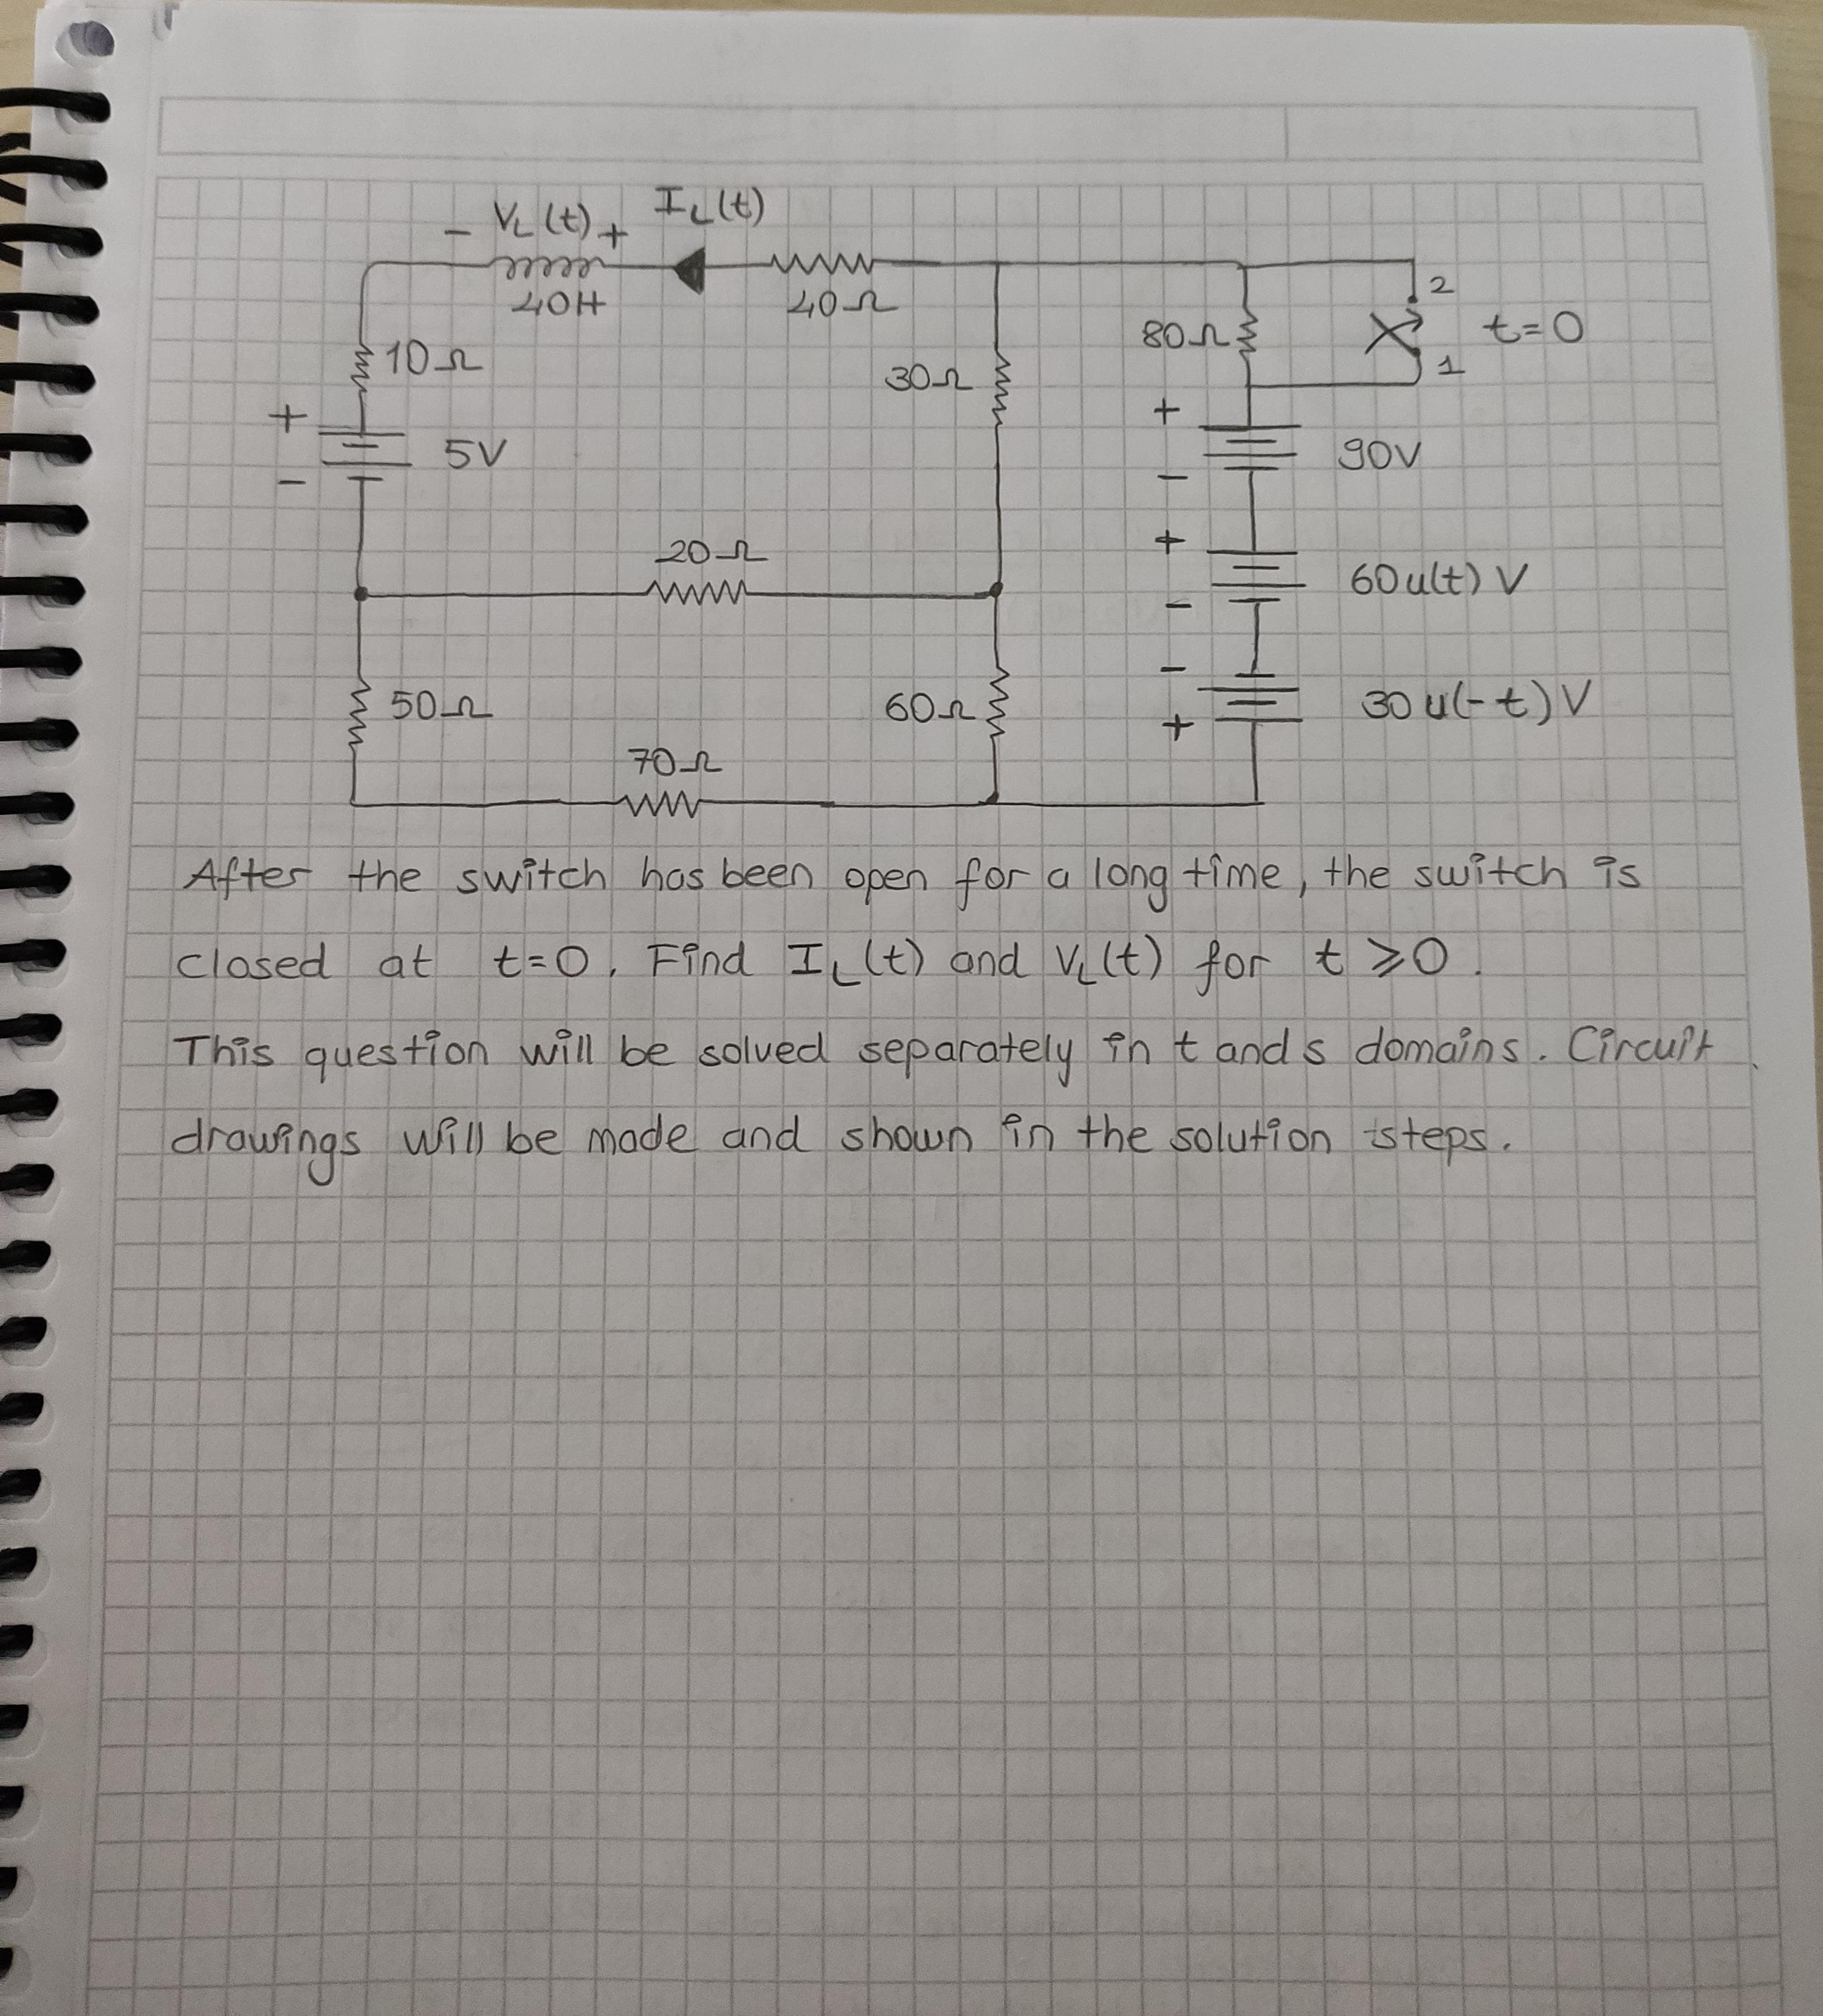 - VL (t) + IL(t)
40H
40Ω
2
80Ω
t=0
1
10Ω
30Ω
+
5V
-
+
90V
-
20Ω
+
60u(t) V
-
-
50Ω
60Ω
30u(-t)V
+
70Ω
After the switch has been open for a long time, the switch is
closed at t=0. Find IL(t) and VL(t) for t ≥0.
This question will be solved separately in t and s domains. Circuit
drawings will be made and shown in the solution steps.